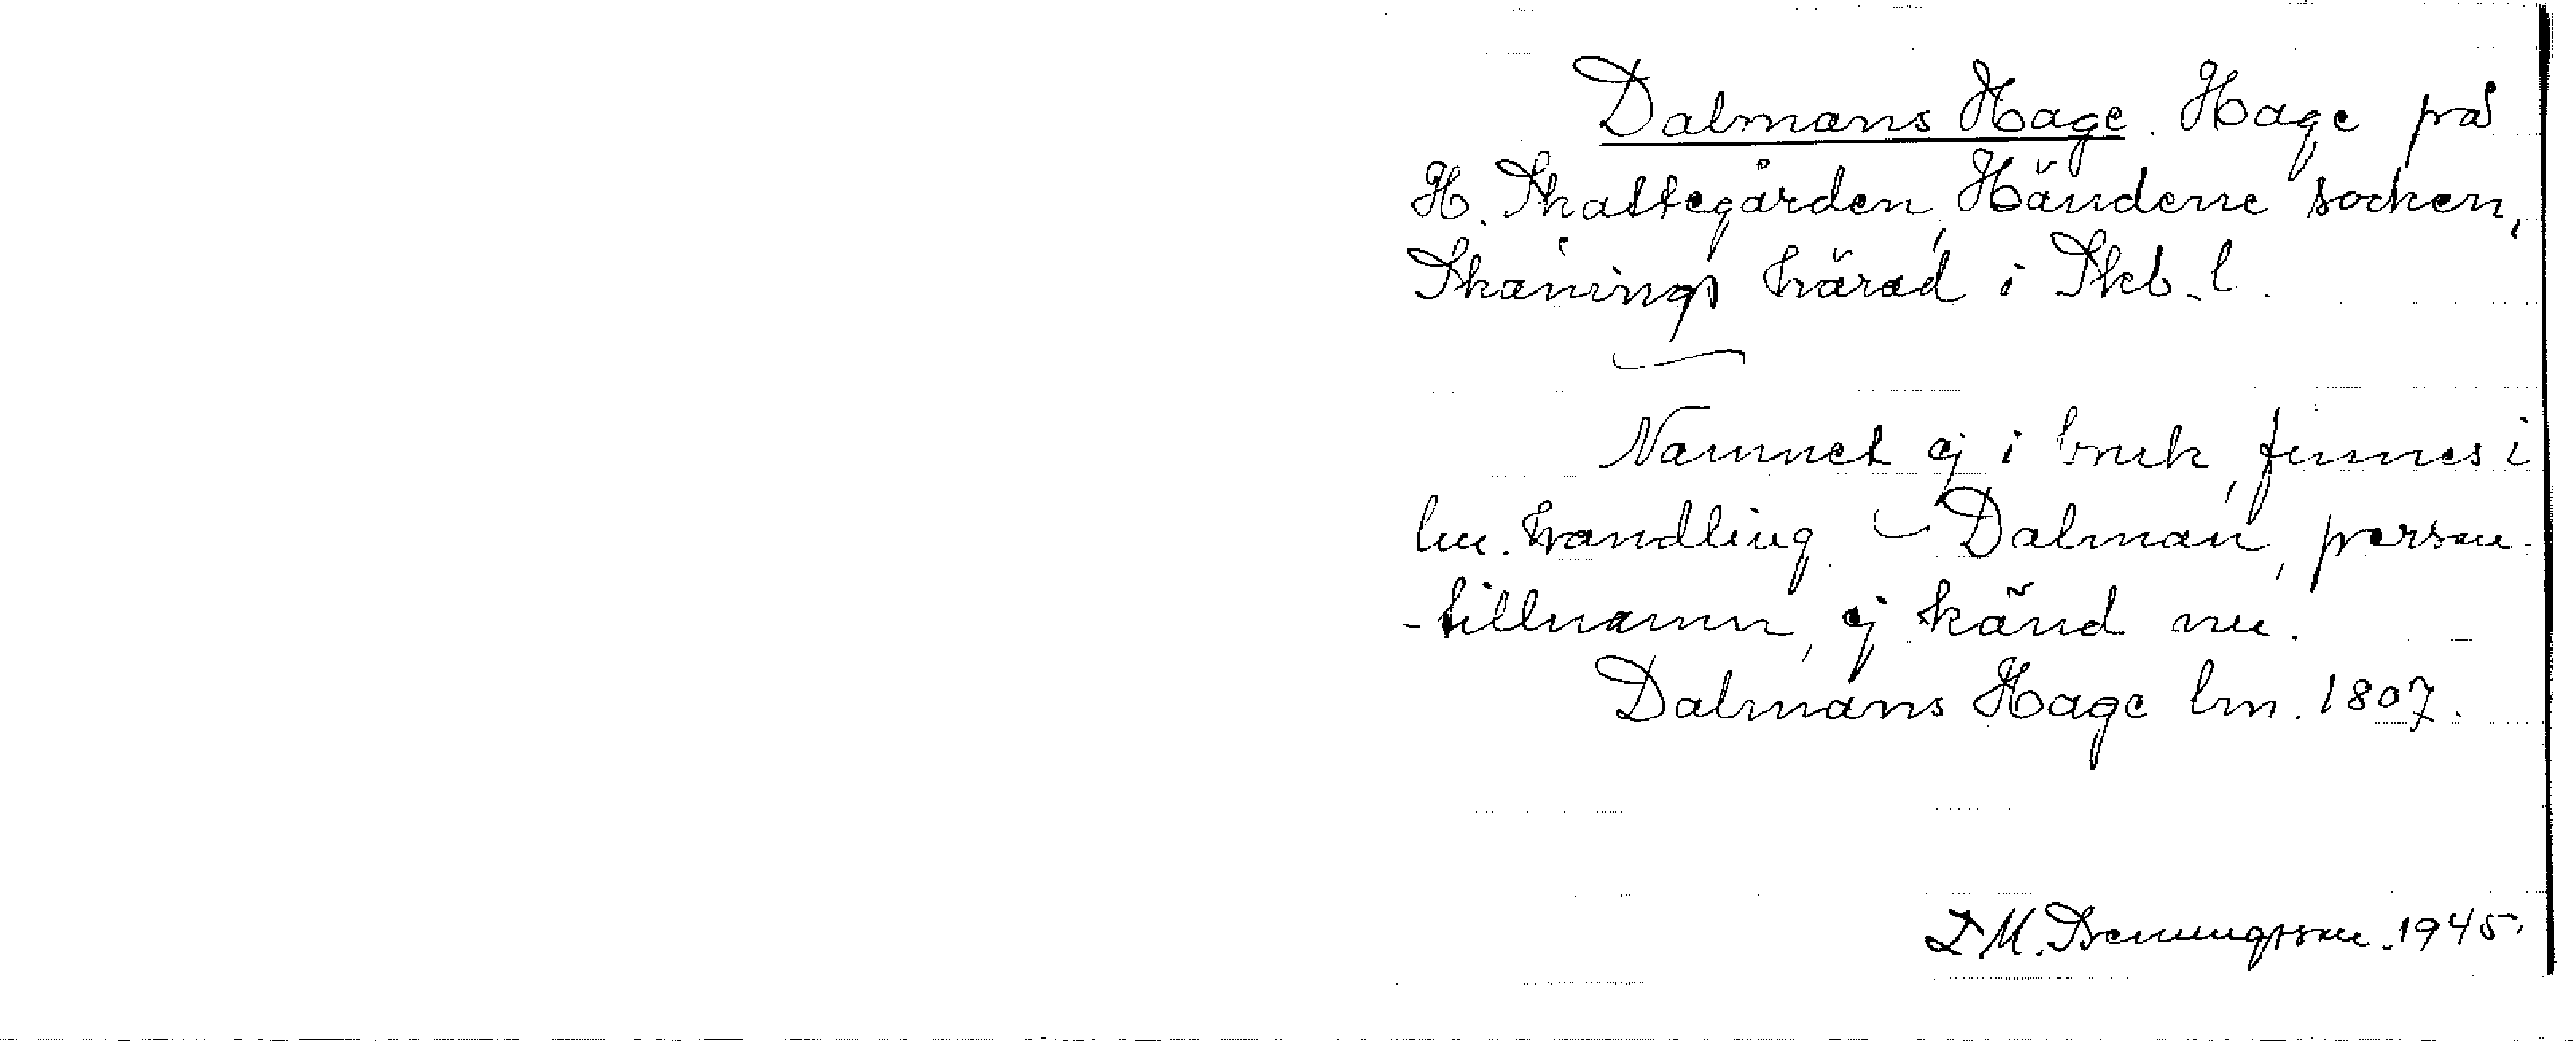 Dalmans Hage. Hage på
H. Skattegården, Händene socken,
Skånings härad i Skb. l.
Namnet ej i bruk, finnes i
lm. handling. – Dalman, person-
-tillnamn, ej känd nu.
Dalmans Hage lm. 1807.
D. M. Benningsson. 1945.